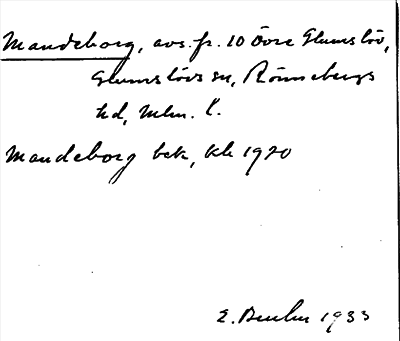 Mandeborg, avs. fr. 10 Övre Glumslöv,
Glumslövs sn, Rönnebergs
hd, Mlm. l.
Mandeborg bek, Kb 1920
E. 1933